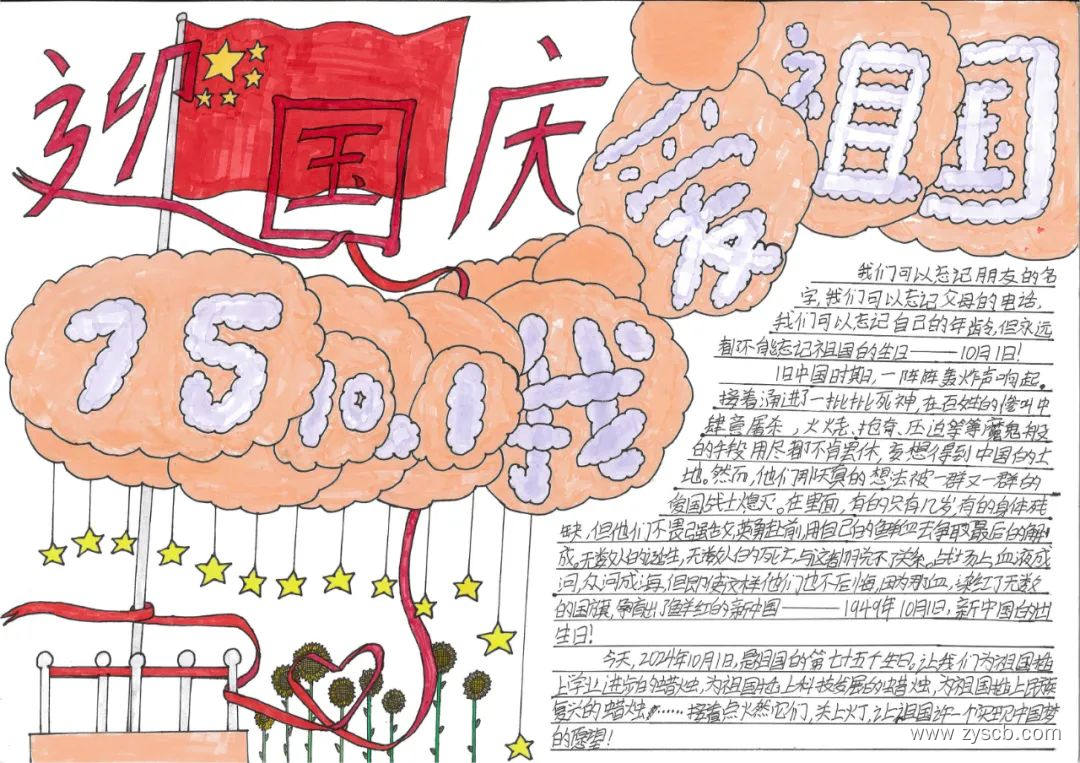 迎国庆
祭祖国
75 10.01 我
我们可以忘记朋友的名
字,我们可以忘记父母的电话,
我们可以忘记自己的年龄,但永远
都不能忘记祖国的生日——10月1日!
旧中国时期,一阵阵轰炸声响起。
接着涌进了一批批死神,在百姓的惨叫中
肆意屠杀,火烧、抢夺、压迫等等魔鬼般
的手段用尽都不肯罢休,妄想得到中国的土
地。然而,他们那天真的想法被一群又一群的
爱国战士熄灭。在里面,有的只有几岁,有的身体残
缺,但他们不畏强敌英勇赴前,用自己的鲜血去争取最后的解
成。无数人的逃生,无数人的死亡与这都脱不了关系。战场上血液成
河,众河成海,但即使这样他们也不后悔,因为那血,染红了无数
的国旗,孕育出了鲜红的新中国——1949年10月1日,新中国的出
生日!
今天,2024年10月1日,是祖国的第七十五个生日。让我们为祖国插
上学业进步的蜡烛,为祖国插上科技发展的蜡烛,为祖国插上民族
复兴的蜡烛……接着点火燃它们,关上灯,让祖国许一个实现中国梦
的愿望!
www.zyscb.com